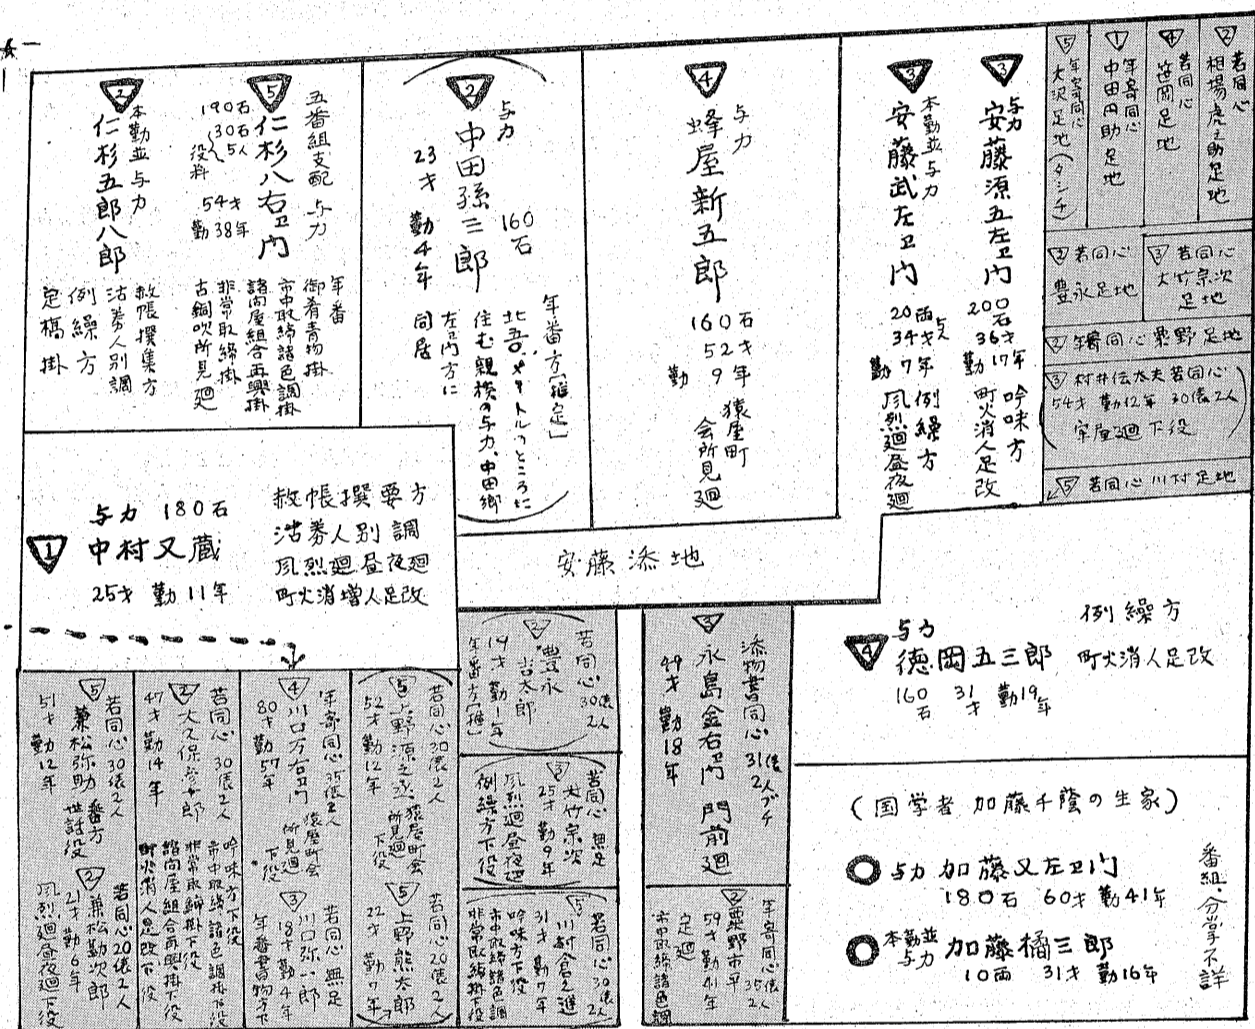 ② 若同心
相場虎之助足地
④ 若同心
笹岡足地
① 年寄同心
中田円助足地
⑤ 年寄同心
大沢足地(タシチ)
③ 若同心
大竹宗次
足地
② 若同心
豊永足地
② 年寄同心 粟野足地
③ 村井伝太夫 若同心
54才 勤12年 30俵2人
牢屋廻下役
⑤ 若同心 川村足地
③ 与力
安藤源五左卫门
200石
36才
勤17年
吟味方
町火消人足改
③ 本勤並与力
安藤武左卫门
20両
34才
勤7年
例繰方
風烈廻昼夜廻
④ 与力
蜂屋新五郎
160石
52才
勤9年
猿屋町
会所見廻
② 与力
中田孫三郎
160石
23才
勤4年
年番方[推定]
北五〇メートルのところに
住む親族の与力、中田郷
左卫门方に
同居
五番組支配 与力
⑤ 仁杉八右卫门
190石
30石
5人
役料
54才
勤38年
年番
御肴青物掛
市中取締諸色調掛
諸問屋組合再興掛
非常取締掛
古銅吹所見廻
② 本勤並与力
仁杉五郎八郎
赦帳撰集方
沽券人別調
例繰方
定橋掛
① 与力 180石
中村又蔵
25才 勤11年
赦帳撰要方
沽券人別調
風烈廻昼夜廻
町火消増人足改
安藤添地
④ 与力
徳岡五三郎
160石
31才
勤19年
例繰方
町火消人足改
(国学者 加藤千蔭の生家)
◎ 与力 加藤又左卫门
180石 60才 勤41年
◎ 本勤並与力 加藤橘三郎
10両 31才 勤16年
番組・分掌不詳
添物書同心 31俵
2人ブチ
③ 永島金右卫门 門前廻
49才 勤18年
年寄同心 35俵
2人
② 粟野市平
59才 勤41年
定廻
市中取締諸色調
若同心 30俵
2人
② 豊永吉太郎
19才 勤1年
年番方[推]
若同心 無足
③ 大竹宗次
25才 勤9年
風烈廻昼夜廻
例繰方下役
若同心 30俵
2人
⑤ 川村倉之進
31才 勤7年
吟味方下役
市中取締諸色調
非常取締掛下役
若同心30俵2人
⑤ 上野源之丞 猿屋町会
所見廻
下役
52才 勤12年
若同心20俵2人
⑤ 上野熊太郎
22才 勤7年
年寄同心 35俵2人
④ 川口万右卫门 猿屋町会
所見廻
下役
80才 勤57年
若同心 無足
③ 川口弥一郎
18才 勤4年
年番書物方下
若同心 30俵2人
② 大久保
47才 勤14年
吟味方下役
市中取締諸色調掛下役
非常取締掛下役
諸問屋組合再興掛下役
町火消人足改下役
若同心 30俵2人
⑤ 兼松弥助 番方
世話役
51才 勤12年
若同心20俵2人
② 兼松勘次郎
21才 勤6年
風烈廻昼夜廻下役